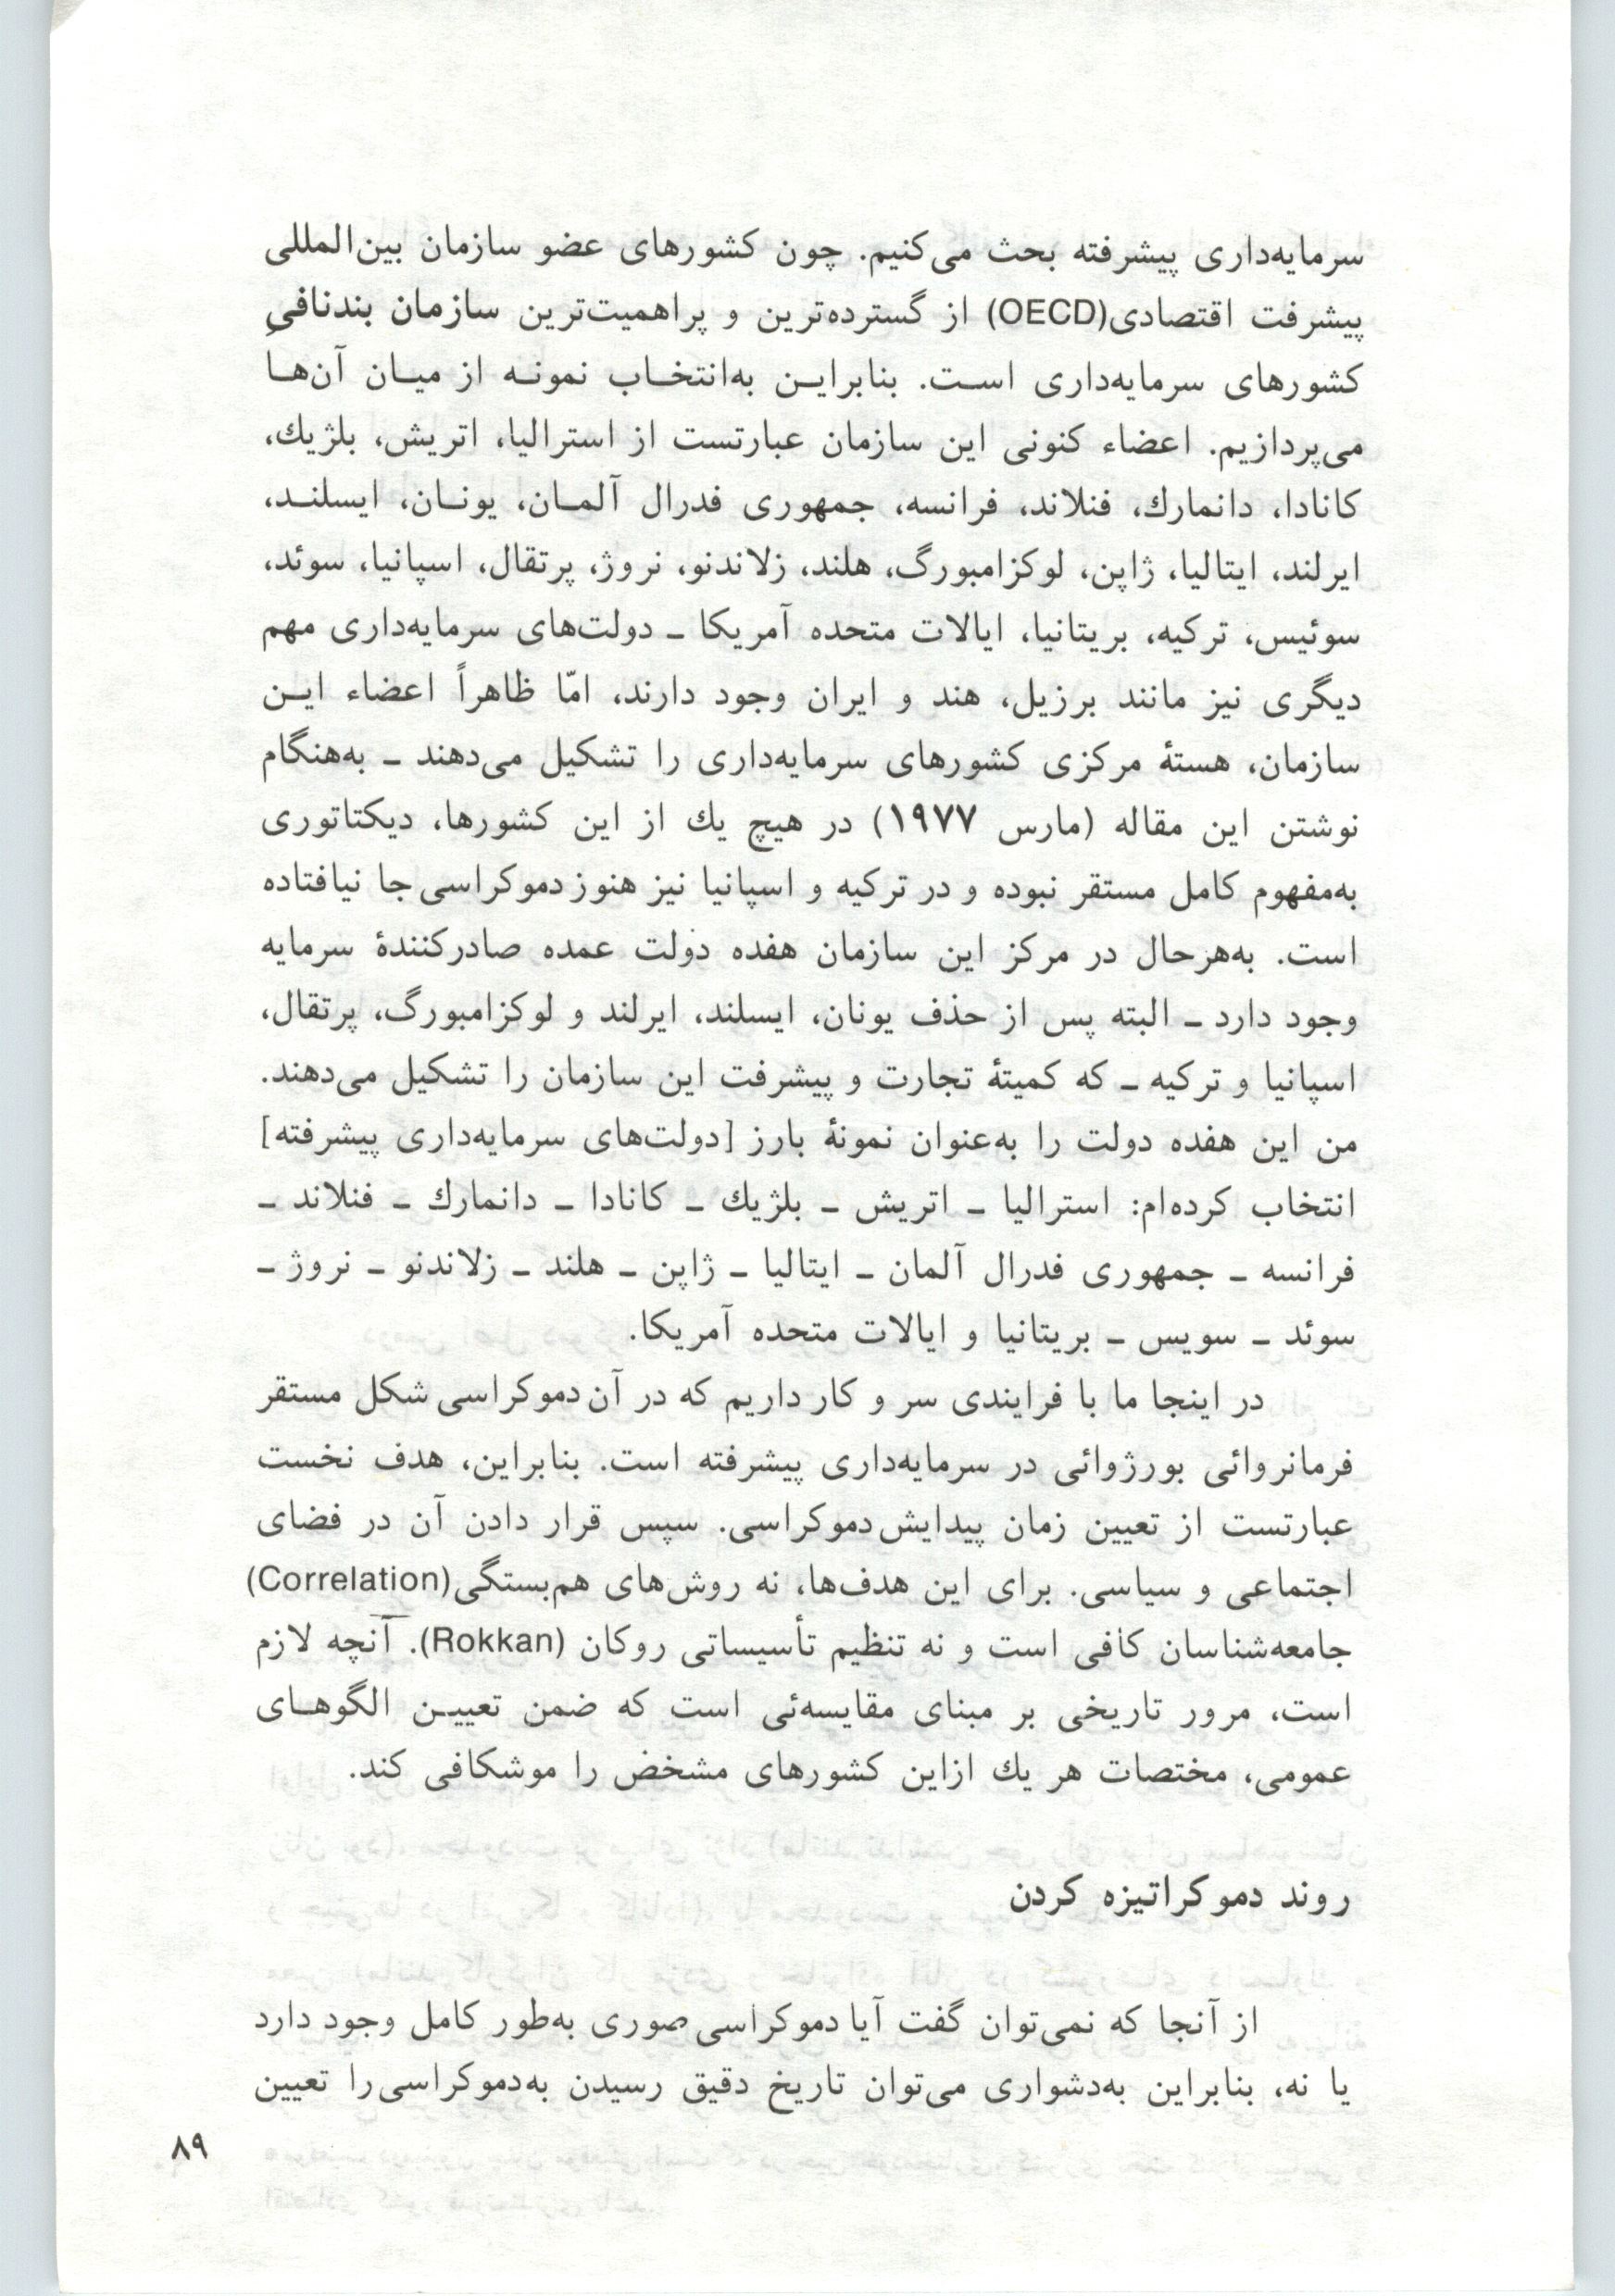 سرمایه‌داری پیشرفته بحث می‌کنیم. چون کشورهای عضو سازمان بین‌المللی
پیشرفت اقتصادی(OECD) از گسترده‌ترین و پراهمیت‌ترین سازمان بندنافیِ
کشورهای سرمایه‌داری اسـت. بنابرایـن به‌انتخـاب نمونـه از میـان آن‌هـا
می‌پردازیم. اعضاء کنونی این سازمان عبارتست از استرالیا، اتریش، بلژیك،
کانادا، دانمارك، فنلاند، فرانسه، جمهوری فدرال آلمـان، یونـان، ایسلنـد،
ایرلند، ایتالیا، ژاپن، لوکزامبورگ، هلند، زلاندنو، نروژ، پرتقال، اسپانیا، سوئد،
سوئیس، ترکیه، بریتانیا، ایالات متحده آمریکا ـ دولت‌های سرمایه‌داری مهم
دیگری نیز مانند برزیل، هند و ایران وجود دارند، امّا ظاهراً اعضاء ایـن
سازمان، هستهٔ مرکزی کشورهای سرمایه‌داری را تشکیل می‌دهند ـ به‌هنگام
نوشتن این مقاله (مارس ۱۹۷۷) در هیچ یك از این کشورها، دیکتاتوری
به‌مفهوم کامل مستقر نبوده و در ترکیه و اسپانیا نیز هنوز دموکراسی جا نیافتاده
است. به‌هرحال در مرکز این سازمان هفده دولت عمده صادرکنندهٔ سرمایه
وجود دارد ـ البته پس از حذف یونان، ایسلند، ایرلند و لوکزامبورگ، پرتقال،
اسپانیا و ترکیه ـ که کمیتهٔ تجارت و پیشرفت این سازمان را تشکیل می‌دهند.
من این هفده دولت را به‌عنوان نمونهٔ بارز [دولت‌های سرمایه‌داری پیشرفته]
انتخاب کرده‌ام: استرالیا ـ اتریش ـ بلژیك ـ کانادا ـ دانمارك ـ فنلاند ـ
فرانسه ـ جمهوری فدرال آلمان ـ ایتالیا ـ ژاپن ـ هلند ـ زلاندنو ـ نروژ ـ
سوئد ـ سویس ـ بریتانیا و ایالات متحده آمریکا.
در اینجا ما با فرایندی سر و کار داریم که در آن دموکراسی شکل مستقر
فرمانروائی بورژوائی در سرمایه‌داری پیشرفته است. بنابراین، هدف نخست
عبارتست از تعیین زمان پیدایش دموکراسی. سپس قرار دادن آن در فضای
اجتماعی و سیاسی. برای این هدف‌ها، نه روش‌های هم‌بستگی(Correlation)
جامعه‌شناسان کافی است و نه تنظیم تأسیساتی روکان (Rokkan). آنچه لازم
است، مرور تاریخی بر مبنای مقایسه‌ئی است که ضمن تعییـن الگوهـای
عمومی، مختصات هر یك ازاین کشورهای مشخض را موشکافی کند.
روند دموکراتیزه کردن
از آنجا که نمی‌توان گفت آیا دموکراسی صوری به‌طور کامل وجود دارد
یا نه، بنابراین به‌دشواری می‌توان تاریخ دقیق رسیدن به‌دموکراسی را تعیین
۸۹